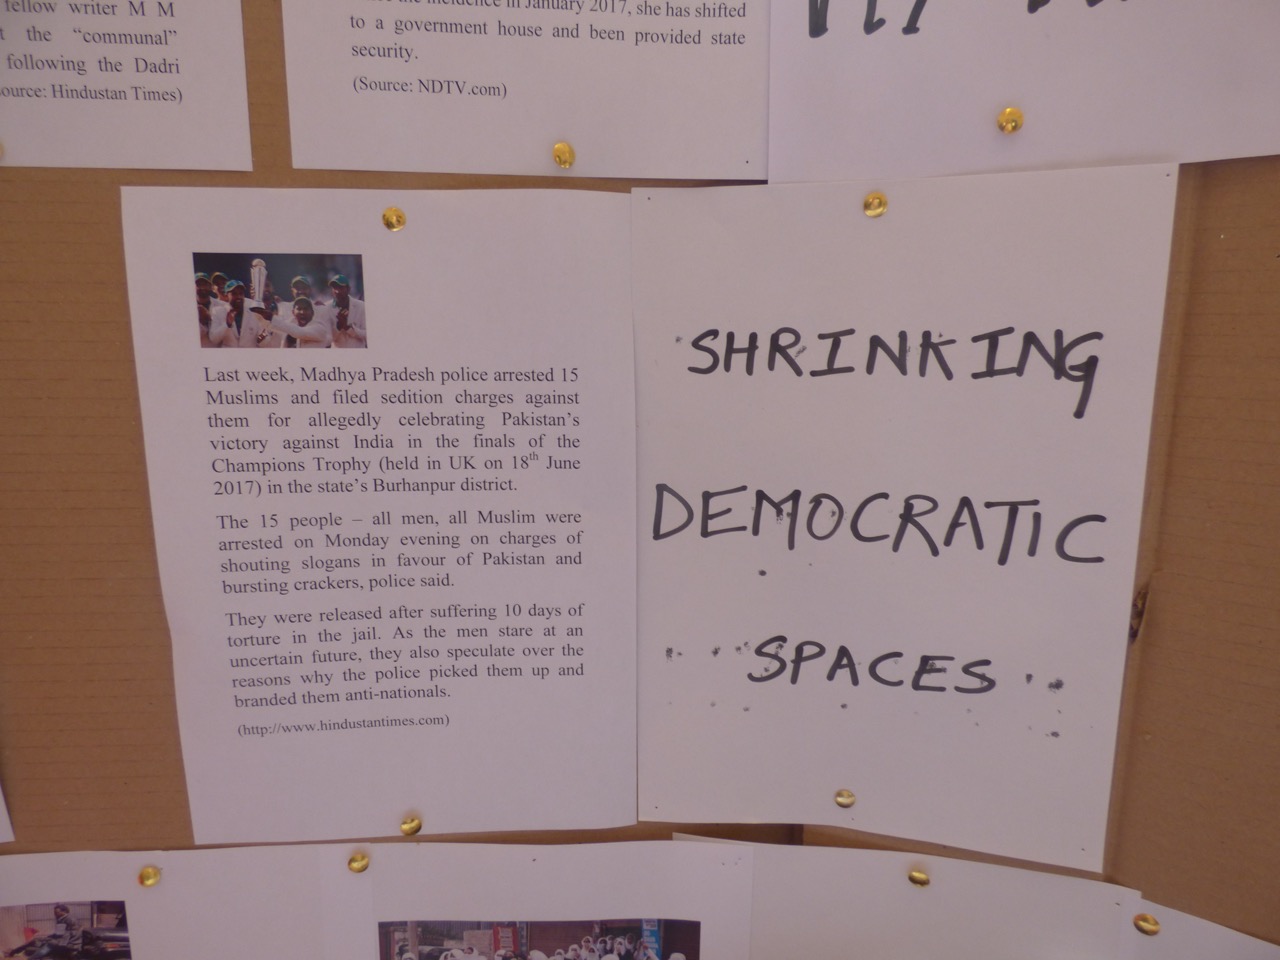 fellow writer M M
the “communal”
following the Dadri
Source: Hindustan Times)
in January 2017, she has shifted
to a government house and been provided state
security.
(Source: NDTV.com)
Last week, Madhya Pradesh police arrested 15
Muslims and filed sedition charges against
them for allegedly celebrating Pakistan’s
victory against India in the finals of the
Champions Trophy (held in UK on 18th June
2017) in the state’s Burhanpur district.
The 15 people – all men, all Muslim were
arrested on Monday evening on charges of
shouting slogans in favour of Pakistan and
bursting crackers, police said.
They were released after suffering 10 days of
torture in the jail. As the men stare at an
uncertain future, they also speculate over the
reasons why the police picked them up and
branded them anti-nationals.
(http://www.hindustantimes.com)
SHRINKING
DEMOCRATIC
SPACES